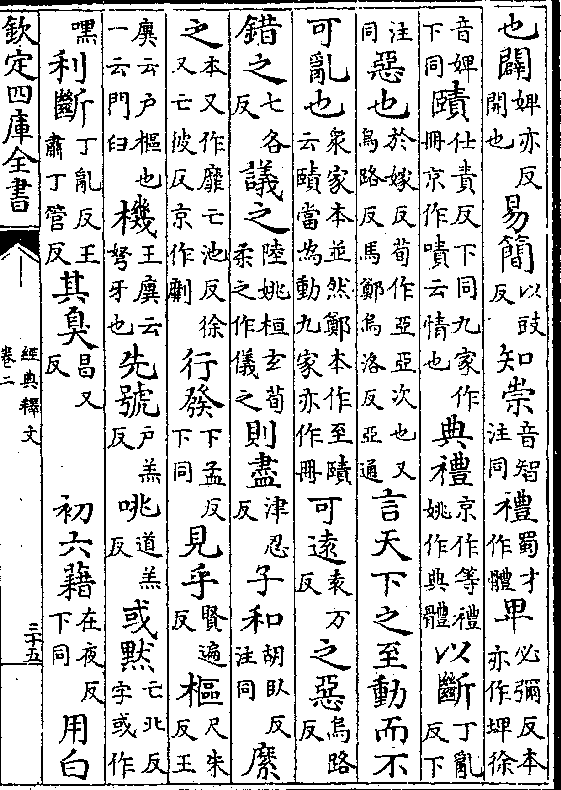 也闢婢亦反開也易簡以豉反知崇音智注同禮蜀才作體卑必彌反本亦作埤徐
音婢下同賾仕責反下同九家作冊京作嘖云情也典禮京作等禮姚作典體以斷丁亂反下
注同惡也於嫁反荀作亞亞次也又烏路反馬鄭烏洛反亞通言天下之至動而不
可亂也衆家本並然鄭本作至賾云賾當為動九家亦作冊可遠袁万反之惡烏路反
錯之七各反議之陸姚桓玄荀柔之作儀之則盡津忍反子和胡臥反注同縻
之本又作靡亡池反徐又亡彼反京作劘行發下孟反下同見乎賢遍反樞尺朱反王
廙云户樞也一云門臼機王廙云弩牙也先號户羔反咷道羔反或默亡北反字或作
嘿利斷丁亂反王肅丁管反其臭昌又反初六藉在夜反下同用白
欽定四庫全書
經典釋文
卷二
三十五